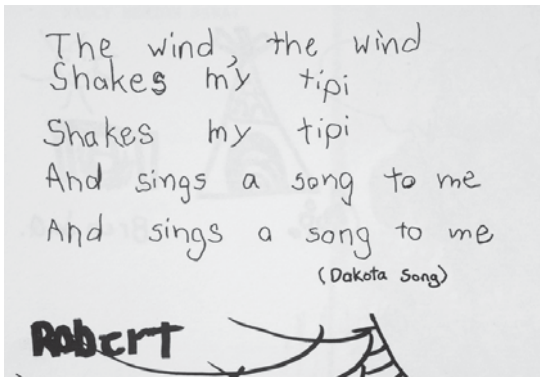 The wind, the wind
Shakes my tipi
Shakes my tipi
And sings a song to me
And sings a song to me
(Dakota Song)
Robert